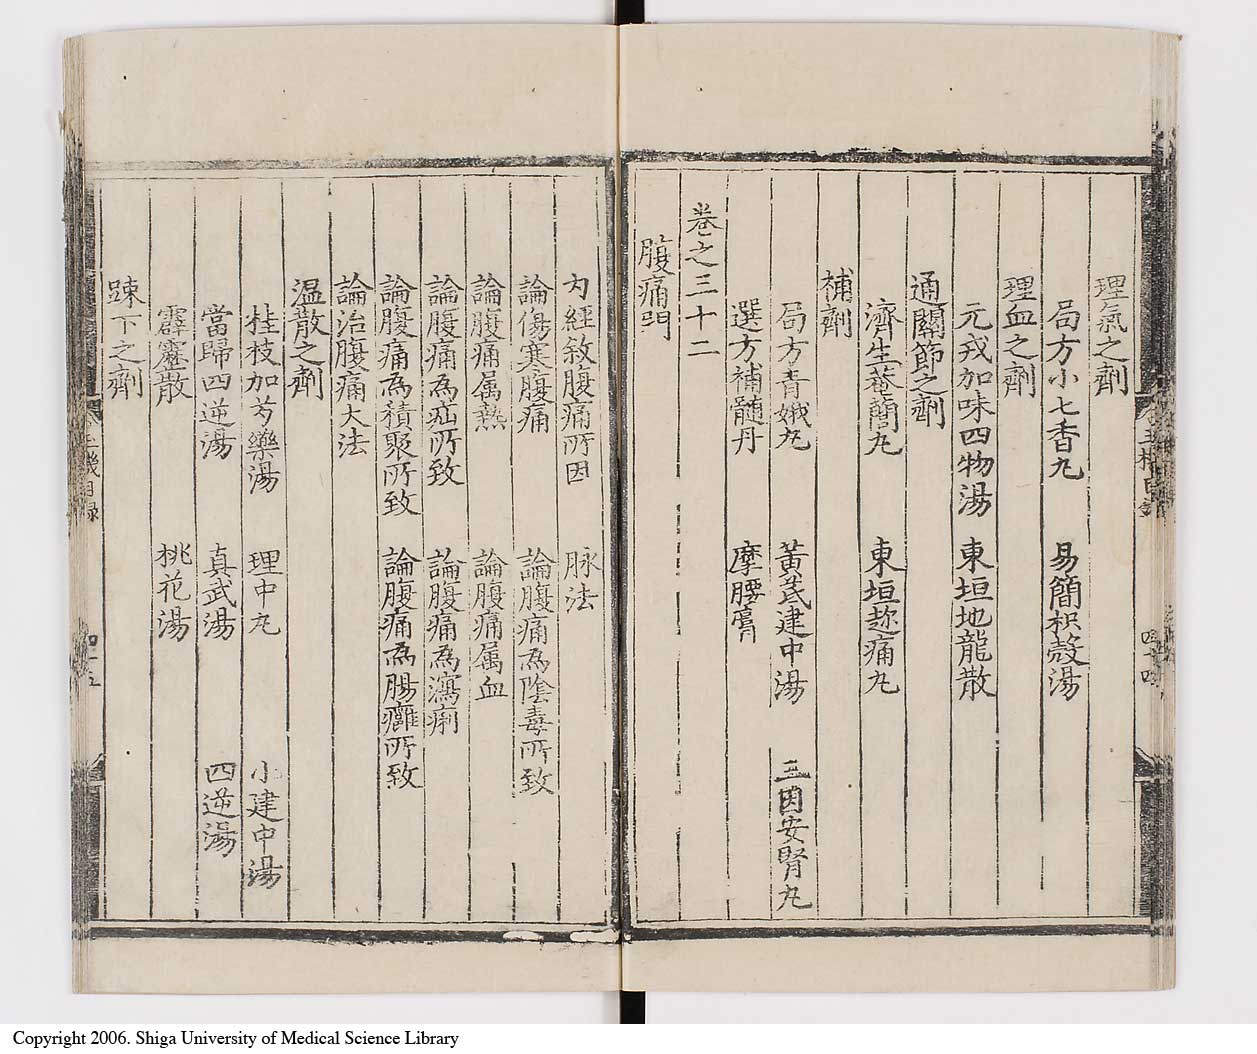 理氣之劑
局方小七香丸 易簡枳殼湯
理血之劑
元戎加味四物湯 東垣地龍散
通關節之劑
濟生菴䕡丸 東垣趂痛丸
補劑
局方青娥丸 黃芪建中湯 三因安腎丸
選方補髓丹 摩腰膏
卷之三十二
腹痛門
内經敘腹痛所因 脉法
論傷寒腹痛 論腹痛為陰毒所致
論腹痛属熱 論腹痛属血
論腹痛為疝所致 論腹痛為瀉痢
論腹痛為積聚所致 論腹痛為腸癰所致
論治腹痛大法
温散之劑
桂枝加芍藥湯 理中丸 小建中湯
當歸四逆湯 真武湯 四逆湯
霹靂散 桃花湯
踈下之劑
玉機目録
四十五
Copyright 2006. Shiga University of Medical Science Library